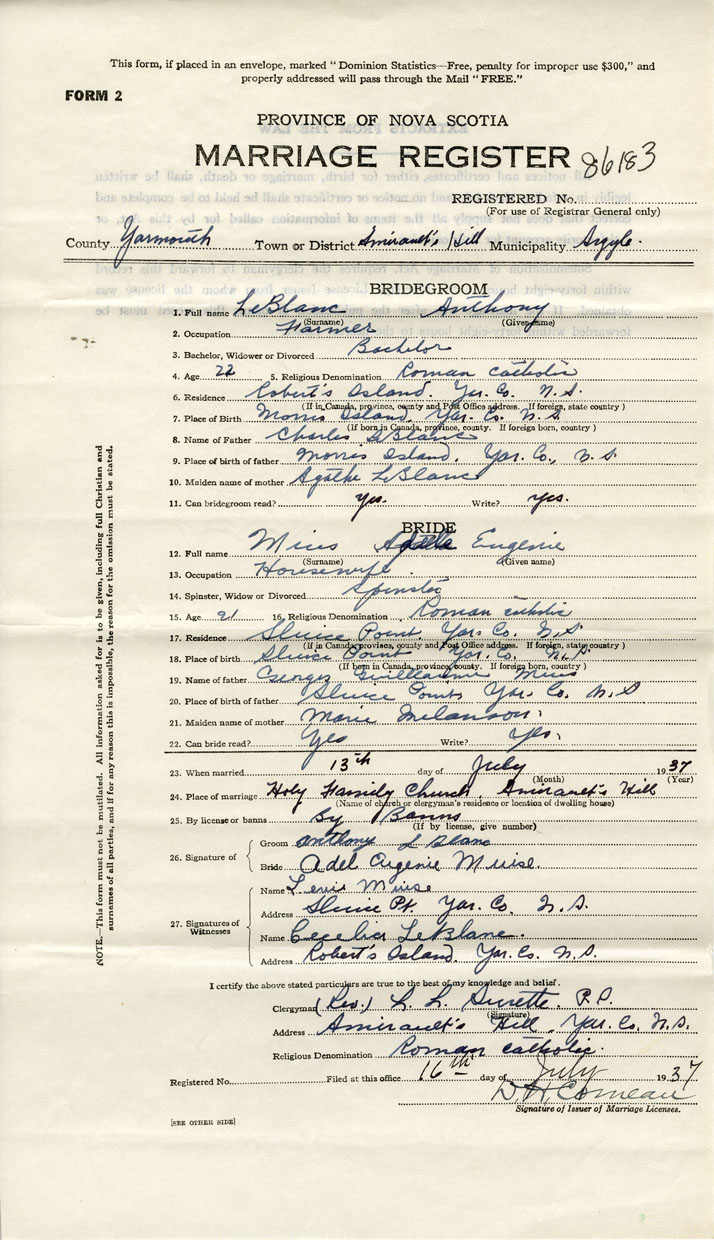 This form, if placed in an envelope, marked "Dominion Statistics—Free, penalty for improper use $300," and
properly addressed will pass through the Mail "FREE."
FORM 2
PROVINCE OF NOVA SCOTIA
MARRIAGE REGISTER 86183
REGISTERED No.
(For use of Registrar General only)
County Yarmouth Town or District Amirault's Hill Municipality Argyle.
BRIDEGROOM
1. Full name LeBlanc Anthony
(Surname) (Given name)
2. Occupation Farmer
3. Bachelor, Widower or Divorced Bachelor
4. Age 22 5. Religious Denomination Roman Catholic
6. Residence Robert's Island. Yar. Co. N.S.
(If in Canada, province, county and Post Office address. If foreign, state country)
7. Place of Birth Morris Island, Yar. Co. N.S.
(If born in Canada, province, county. If foreign born, country)
8. Name of Father Charles LeBlanc
9. Place of birth of father Morris Island. Yar. Co., N.S
10. Maiden name of mother Agathe LeBlanc
11. Can bridegroom read? Yes. Write? Yes.
BRIDE
12. Full name Mius Eugenie
(Surname) (Given name)
13. Occupation Housewife
14. Spinster, Widow or Divorced Spinster
15. Age 21 16. Religious Denomination Roman Catholic
17. Residence Sluice Point. Yar. Co. N.S
(If in Canada, province, county and Post Office address. If foreign, state country)
18. Place of birth Sluice Point Yar. Co. N.S.
(If born in Canada, province, county. If foreign born, country)
19. Name of father Georges Guillaume Mius
20. Place of birth of father Sluice Point Yar. Co. N.S
21. Maiden name of mother Marie Melanson
22. Can bride read? Yes Write? Yes.
23. When married 13th day of July 1937
(Month) (Year)
24. Place of marriage Holy Family Church, Amirault's Hill
(Name of church or clergyman's residence or location of dwelling house)
25. By license or banns By Banns
(If by license, give number)
26. Signature of
Groom Anthony L Blanc
Bride Adel Eugenie Muise.
27. Signatures of Witnesses
Name Muise
Address Sluice Pt. Yar. Co. N.S.
Name Cecelia LeBlanc.
Address Robert's Island. Yar. Co. N.S.
I certify the above stated particulars are true to the best of my knowledge and belief.
Clergyman (Rev.) L. L. Surette. P.P.
(Signature)
Address Amirault's Hill, Yar. Co. N.S.
Religious Denomination Roman Catholic.
Registered No. Filed at this office 16th day of July 1937
D H Comeau
Signature of Issuer of Marriage Licenses.
[SEE OTHER SIDE]
NOTE.—This form must not be mutilated. All information asked for is to be given, including full Christian and
surnames of all parties, and if for any reason this is impossible, the reason for the omission must be stated.